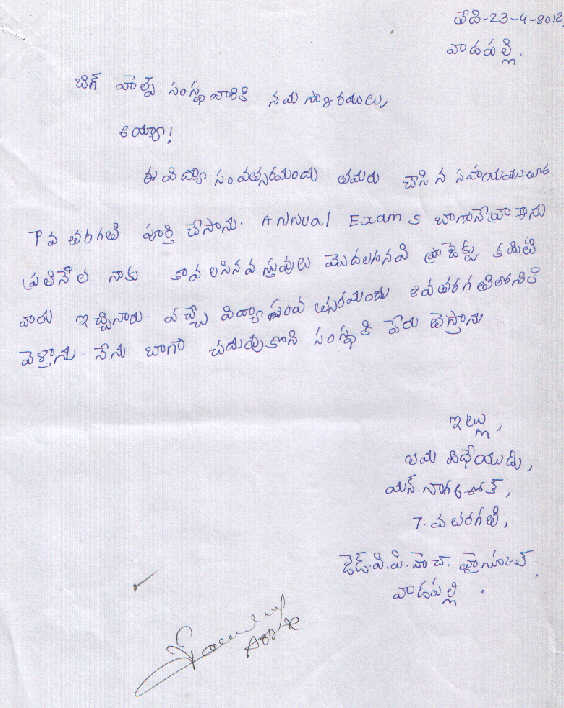 తేది-23-4-2012,
వాడపల్లి.
బిగ్ హెల్ప్ సంస్థ వారికి నమస్కారములు,
అయ్యా!
ఈ విద్యా సంవత్సరమందు తమరు చేసిన సహాయము వలన
7వ తరగతి పూర్తి చేసాను. Annual Exams బాగా వ్రాసాను
ప్రతినెల నాకు కావలసిన వస్తువులు మొదలగునవి ప్రాజెక్ట్ కమిటి
వారు ఇచ్చినారు వచ్చే విద్యాసంవత్సరమందు 8వ తరగతిలోనికి
వెళ్తాను. నేను బాగా చదువుకొని సంస్థకి పేరు తెస్తాను
ఇట్లు,
తమ విధేయుడు,
యస్ నాగ
7.వ తరగతి,
జెడ్.పి.పి.హెచ్.
వాడపల్లి.